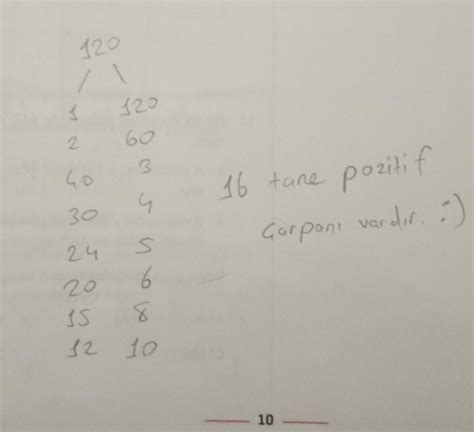 120
1 120
2 60
40 3
30 4
24 5
20 6
15 8
12 10
16 tane pozitif
Çarpanı vardır. :)
10